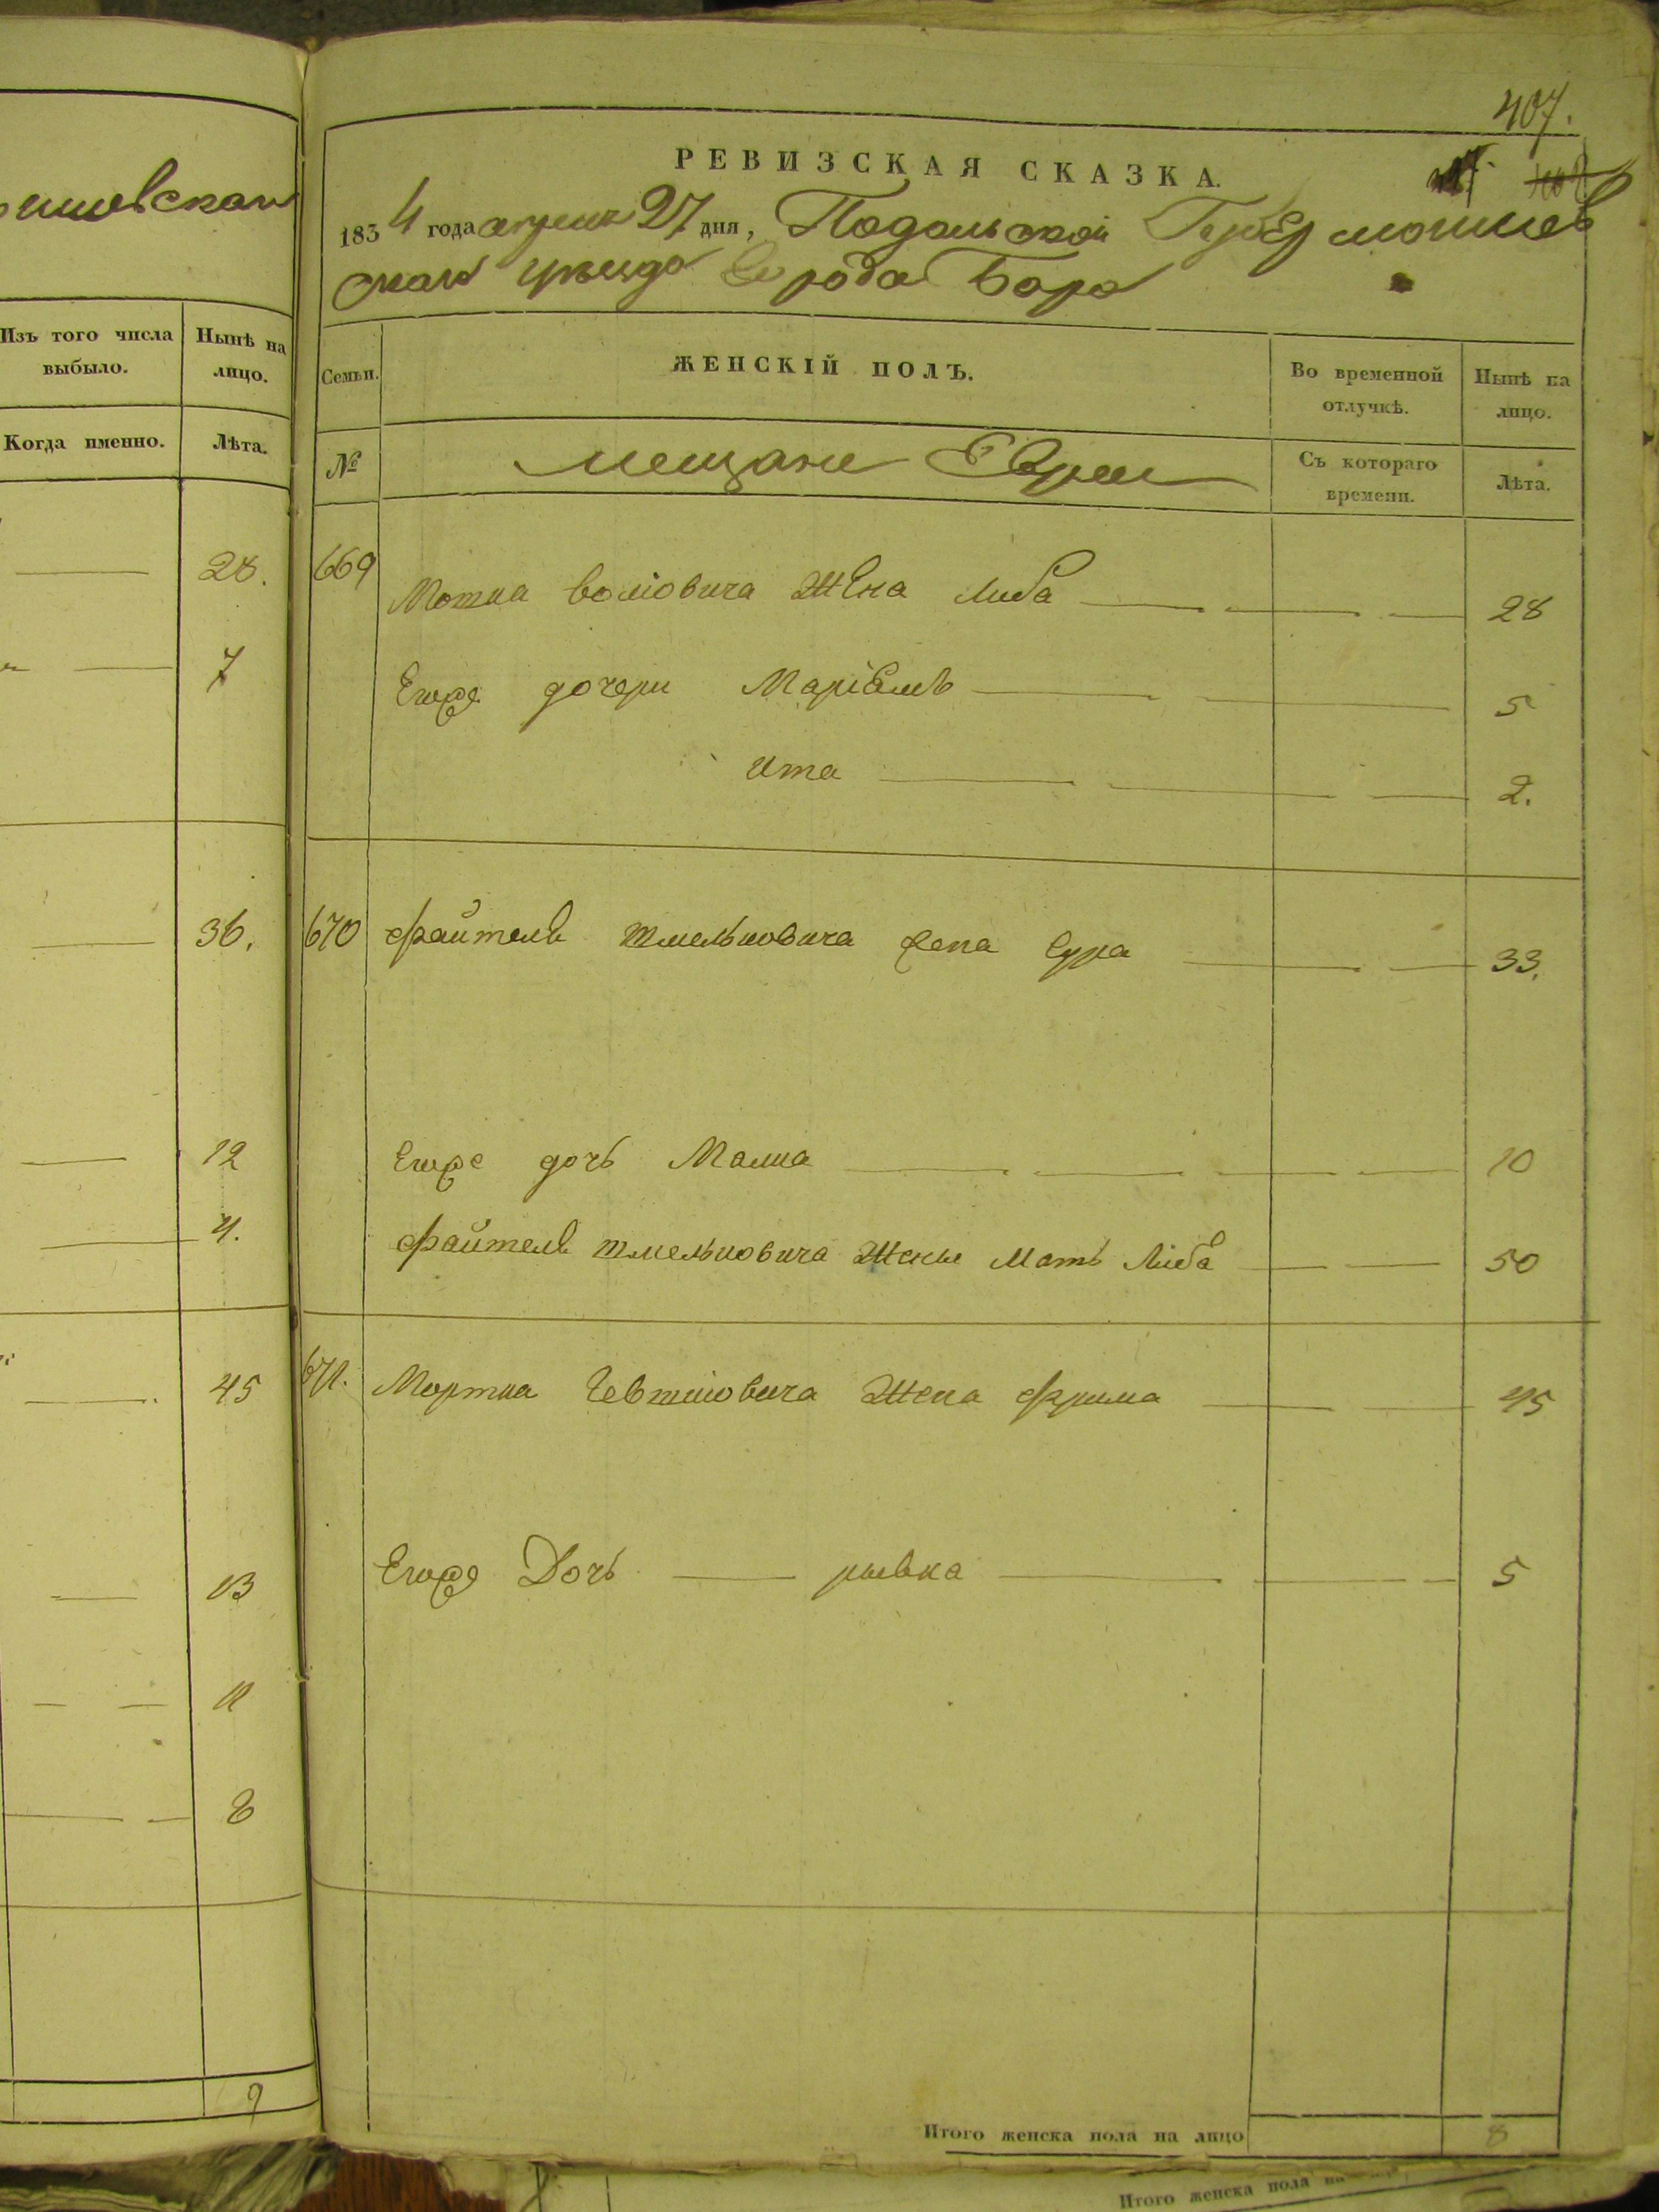 ишевскаго
Изъ того числа выбыло.
Ныне на лицо.
Когда именно.
Лѣта.
28.
7
36.
12
4.
45
13
11
8
9
407.
РЕВИЗСКАЯ СКАЗКА.
1834 года апреля 27 дня, Подольской Губер могилев
скаго уѣзда города Бара
Семьи.
ЖЕНСКІЙ ПОЛЪ.
Во временной отлучкѣ.
Нынѣ на лицо.
№
мещане Евреи
Съ котораго времени.
Лѣта.
669
Мотка Волювича Жена Либа 28
Егоже дочери Маріамъ 5
Ита 2.
670 Файтеля Шмельковича жена Сура 33.
Егоже дочь Малка 10
Файтеля Шмельковича Жены Мать Либа 50
671. Мортка Жена Фрима 45
Егоже Дочь рывка 5
Итого женска пола на лицо 8
Итого женска пола на